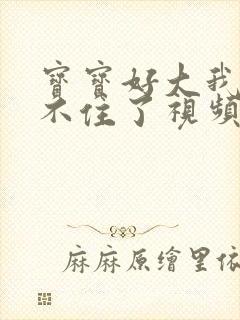 寶寶好大我
不住了視頻
麻麻原繪里依